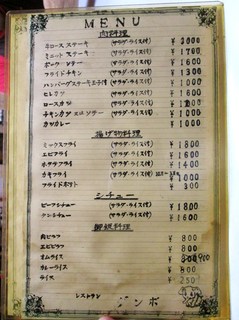 MENU
肉料理
ロースステーキ (サラダ・ライス付) ¥2000
ミニットステーキ (サラダ・ライス付) ¥1700
ポークソテー (サラダ・ライス付) ¥1600
フライドチキン (サラダ・ライス付) ¥1300
ハンバーグステーキエッグ付 (サラダ・ライス付) ¥1600
ヒレカツ (サラダ・ライス付) ¥1800
ロースカツ (サラダ・ライス付)
チキンカツ (サラダ・ライス付) ¥1000
カツカレー (サラダ・ライス付) ¥1000
揚げ物料理
ミックスフライ (サラダ・ライス付) ¥1800
エビフライ (サラダ・ライス付) ¥1600
ホタテフライ (サラダ・ライス付) ¥1400
カキフライ (サラダ・ライス付)
フライドポテト ¥300
シチュー
ビーフシチュー (サラダ・ライス付) ¥1800
タンシチュー (サラダ・ライス付) ¥1600
御飯料理
肉ピラフ ¥800
エビピラフ ¥800
オムライス
カレーライス
ライス ¥250
レストラン ジンボ